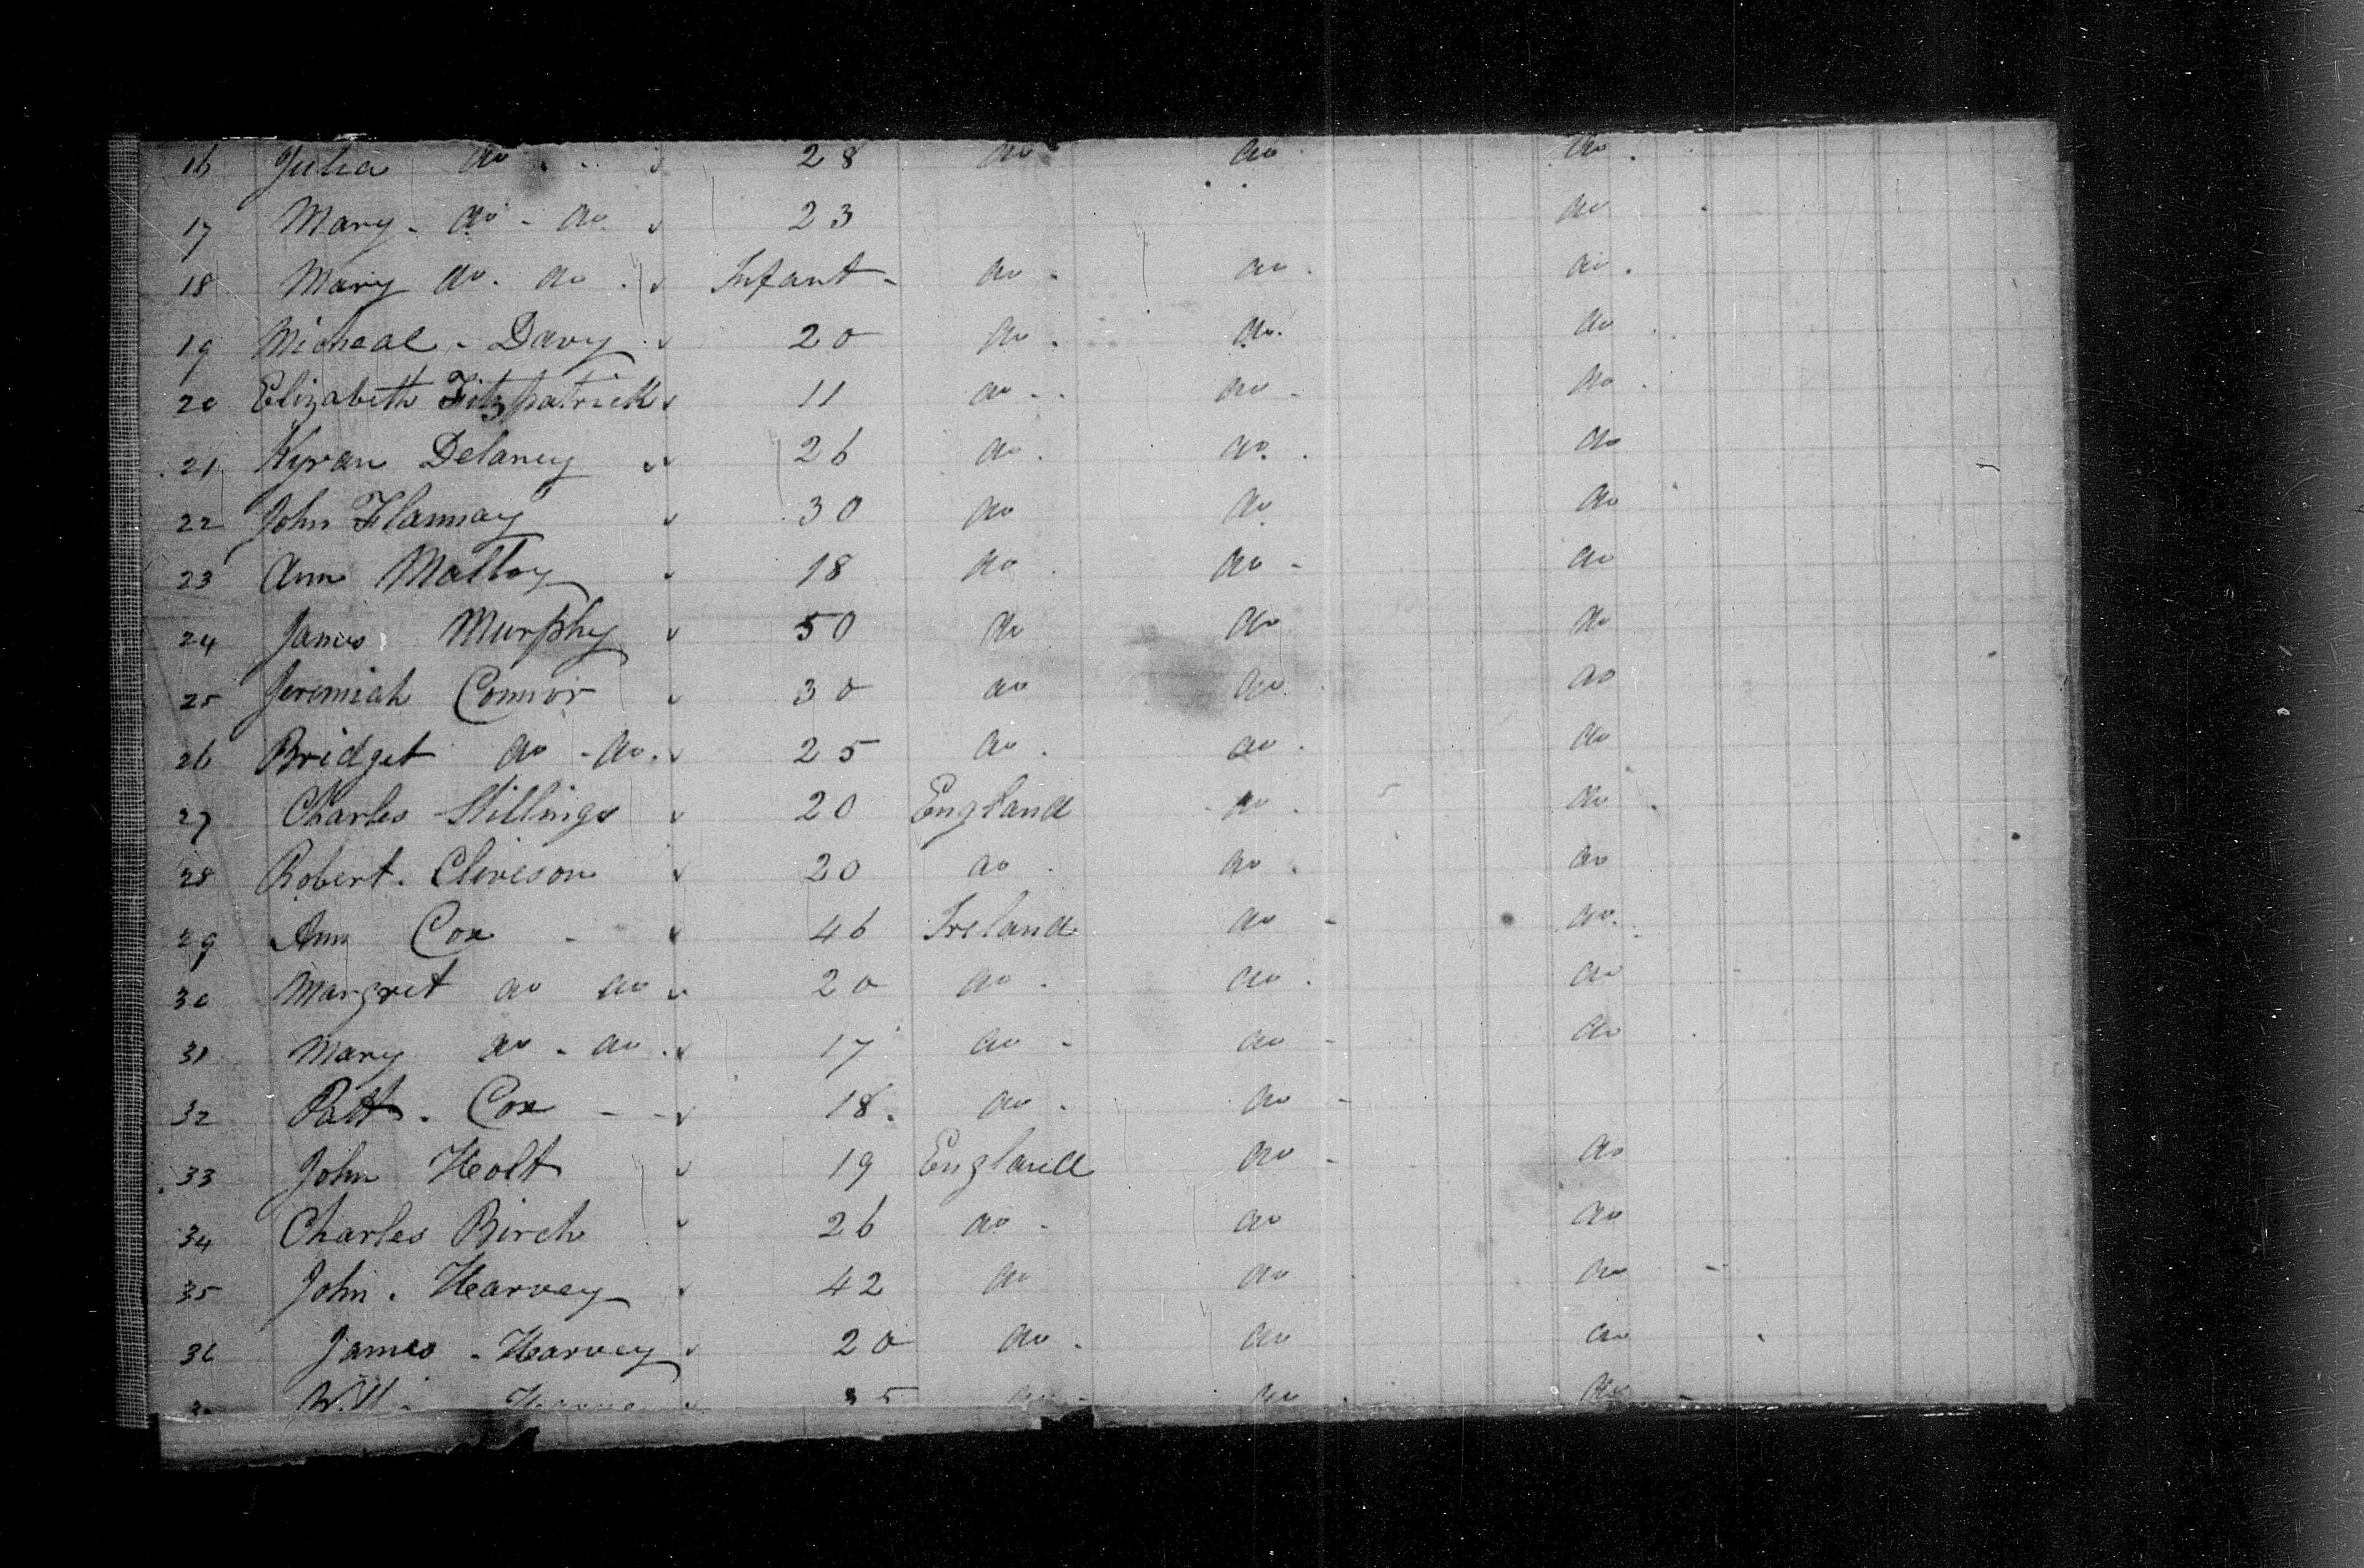 16 Julia do 28 do do do
17 Mary do do 23 do
18 Mary do do Infant do do do
19 Micheal Davy 20 do do do
20 Elizabeth Fitzpatrick 11 do do do
21 Kyran Delaney 26 do do do
22 John Flannay 30 do do do
23 Ann Malloy 18 do do do
24 James Murphy 50 do do do
25 Jeremiah Connor 30 do do do
26 Bridget do do 25 do do do
27 Charles Stillings 20 England do do
28 Robert Cliveson 20 do do do
29 Ann Cox 46 Ireland do do
30 Margret do do 20 do do do
31 Mary do do 17 do do do
32 Patt Cox 18 do do
33 John Holt 19 England do do
34 Charles Birch 26 do do do
35 John Harvey 42 do do do
36 James Harvey 20 do do do
do do do